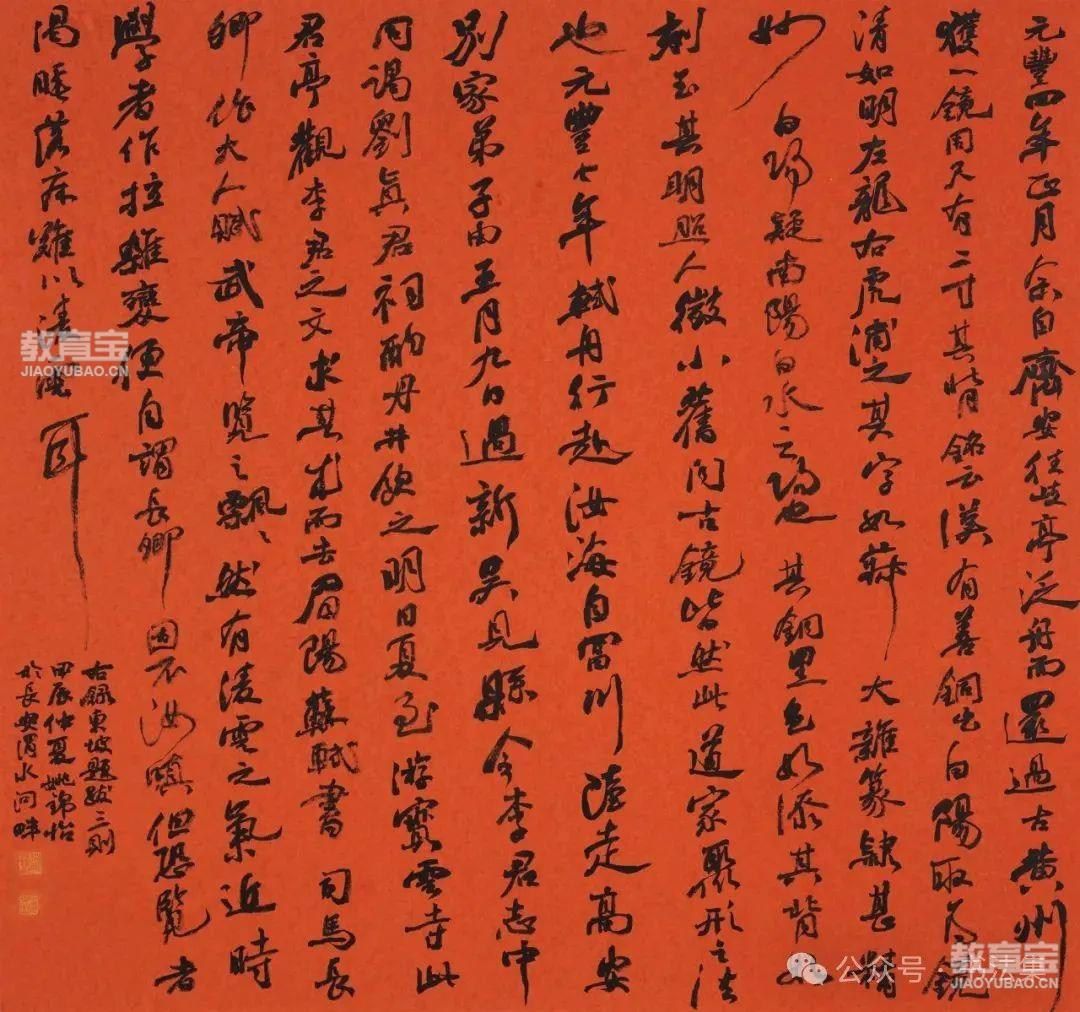 元豐四年正月余自齊安往岐亭泛舟而還過古黄州
獲一鏡周尺有二寸其背銘云漢有善銅出白陽取為鏡
清如明左龍右虎浦之其字如菽大雜篆隸甚精
妙白陽疑南陽白水之陽也其銅黑色如漆其背如
刻玉其明照人微小舊聞古鏡皆然此道家聚形之法
也元豐七年軾舟行赴汝海自富川陸走高安
別家弟子由五月九日過新吴見縣令李君志中
同謁劉真君祠酌丹井飲之明日夏至游寳雲寺此
君亭觀李君之文求其本而去眉陽蘇軾書司馬長
卿作大人賦武帝覽之飄〻然有淩雲之氣近時
學者作拉雜變便自謂長卿固不汝嗔但恐覽者
渴睡落床難以淩雲耳
右録東坡題跋三則
甲辰仲夏姚錦怡
於長安渭水河畔
教育宝
JIAOYUBAO.CN
公众号
教育宝
JIAOYUBAO.CN